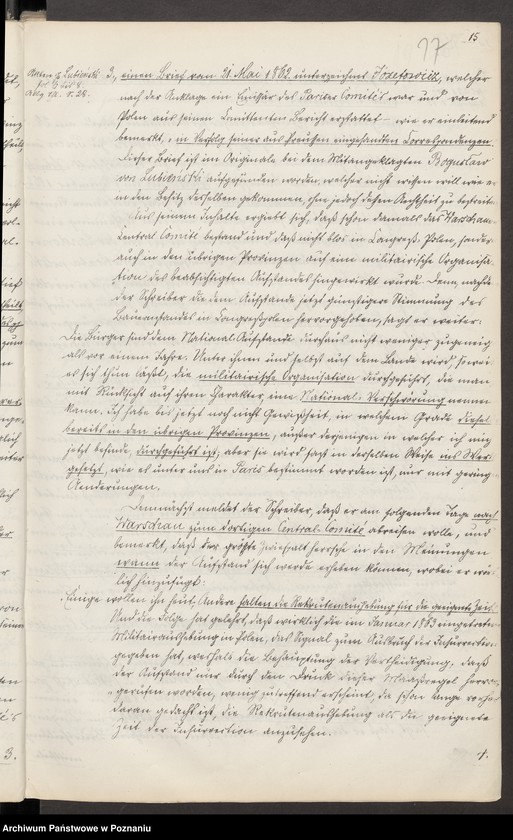 77
15
Akten p. Lubienski
fol. 1. bis 8
Abg. 12. S. 28.
3., einen Brief vom 21. Mai 1862. unterzeichnet Józefowicz, welcher
nach der Anklage ein Emissär des Pariser Comités war und von
Polen aus seinen Emittenten Bericht erstattet – wie er einleitend
bemerkt, in Verfolg seiner aus Preußen eingesandten Correspondenzen.
Dieser Brief ist im Originale bei dem Mitangeklagten Boguslaw
von Lubienski aufgefunden worden, welcher nicht wissen will wie er
in den Besitz desselben gekommen, ohne jedoch dessen Aechtheit zu bestreiten.
Aus seinem Inhalte ergiebt sich, daß schon damals das Warschauer
Central Comité bestand und daß nicht blos in Congreß-Polen, sondern
auch in den übrigen Provinzen auf eine militairische Organisa-
tion des beabsichtigten Aufstandes hingewirkt wurde. Denn, nachdem
der Schreiber die dem Aufstande jetzt günstigere Stimmung des
Bauernstandes in Congreßpolen hervorgehoben, sagt er weiter:
Die Bürger sind dem National Aufstande durchaus nicht weniger zugeneigt
als vor einem Jahre. Unter ihnen und selbst auf dem Lande wird, soweit
es sich thun läßt, die militairische Organisation durchgeführt, die man
mit Rücksicht auf ihren Charakter eine National-Verschwörung nennen
kann. Ich habe bis jetzt noch nicht Gewißheit, in welchem Grade dieselbe
bereits in den übrigen Provinzen, außer derjenigen in welcher ich mich
jetzt befinde, durchgeführt ist; aber sie wird ganz in derselben Weise ins Werk
gesetzt, wie es unter uns in Paris bestimmt worden ist, nur mit geringen
Aenderungen.
Demnächst meldet der Schreiber, daß er am folgenden Tage nach
Warschau zum dortigen Central-Comité abreisen wolle, und
bemerkt, daß der größte Zwiespalt herrsche in den Meinungen
wann der Aufstand sich werde erheben können, wobei er wört-
lich hinzufügt:
Einige wollen ihn heut, Andere halten die Rekrutenaushebung für die geeignete Zeit.
Und die Folge hat gelehrt, daß wirklich die im Januar 1863 eingetretene
Militairaushebung in Polen, das Signal zum Ausbruch der Insurrection
gegeben hat, weshalb die Behauptung der Vertheidigung, daß
der Aufstand nur durch den Druck dieser Maaßregel hervor-
gerufen worden, wenig zutreffend erscheint, da schon lange vorher
daran gedacht ist, die Rekrutenaushebung als die geeignete
Zeit der Insurrection anzusehen.
4.
3.
Archiwum Państwowe w Poznaniu